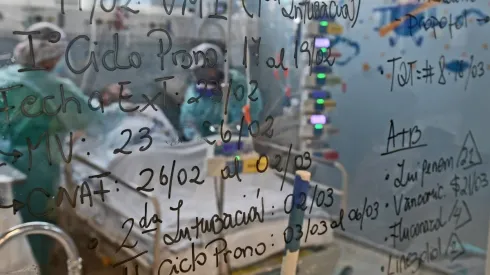 11/02: VMI (1ª Intubación)
Iº Ciclo Prono: 17 al 19/02
Fecha Ext: 2 /02
→ MV: 23 26/02
→ CNAF: 26/02 al 02/03
• 2da Intubación: 02/03
Ciclo Prono: 03/03 al 06/03
Propofol
• TQT: #8 /03
ATB
• Imipenem
• Vancomic
• Fluconazol
• Linezolid